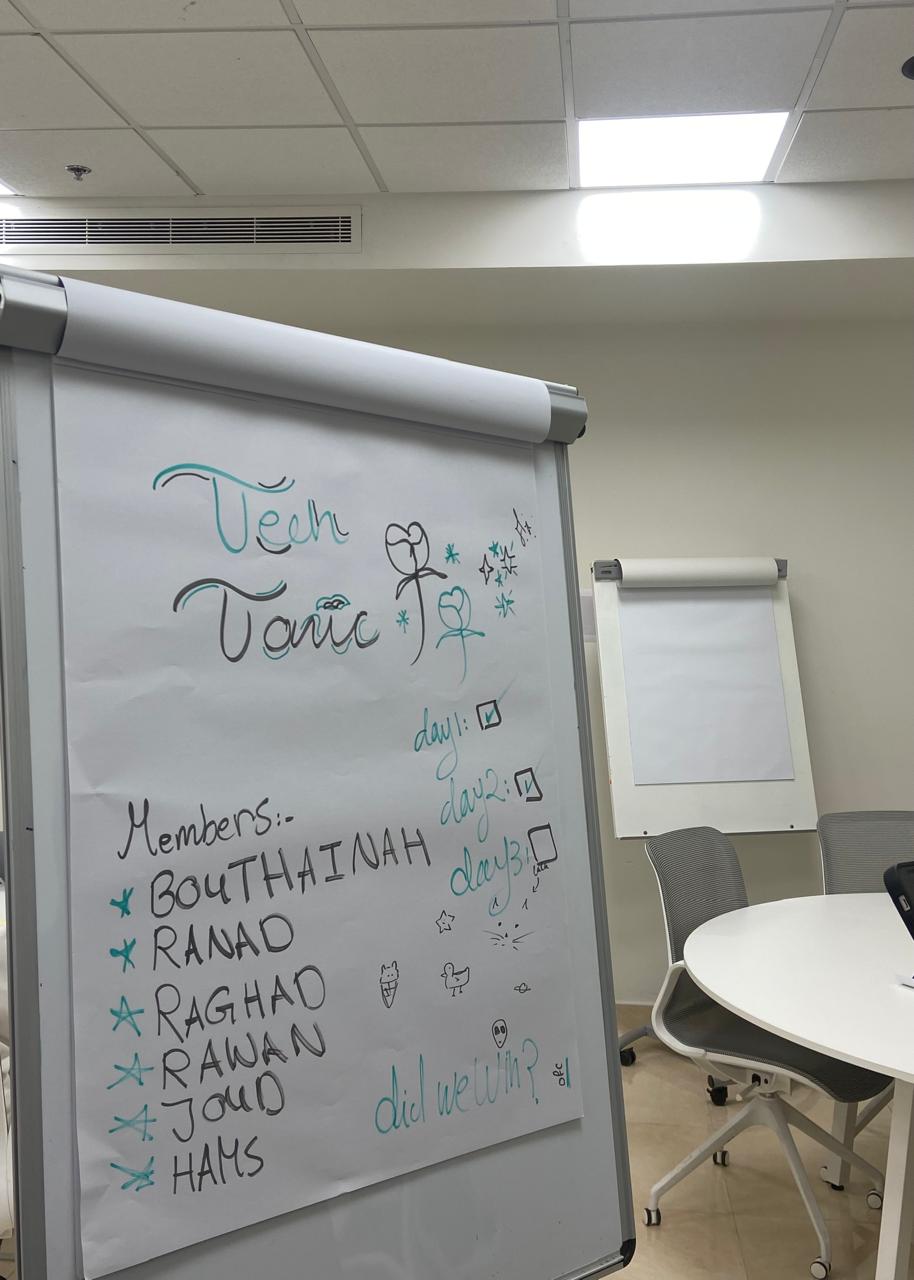 Tech
Tonic
day1:
day2:
day3:
Members:-
BOUTHAINAH
RANAD
RAGHAD
RAWAN
JOUD
HAMS
did we Win?
ofc